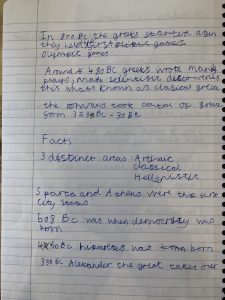 In 800 BC the greeks started again
they held first olympic games
Olympic games
Around 480 BC greeks wrote many
plays, made scientific discoveries
this was known as classical greece
the romans took control of greece
from 323BC - 30BC
Facts
3 distinct areas: Archaic
Classical
Hellenistic
Sparta and Athens were the first
City States
508 BC was when democracy was
born
460BC was born
336BC Alexander the great takes over